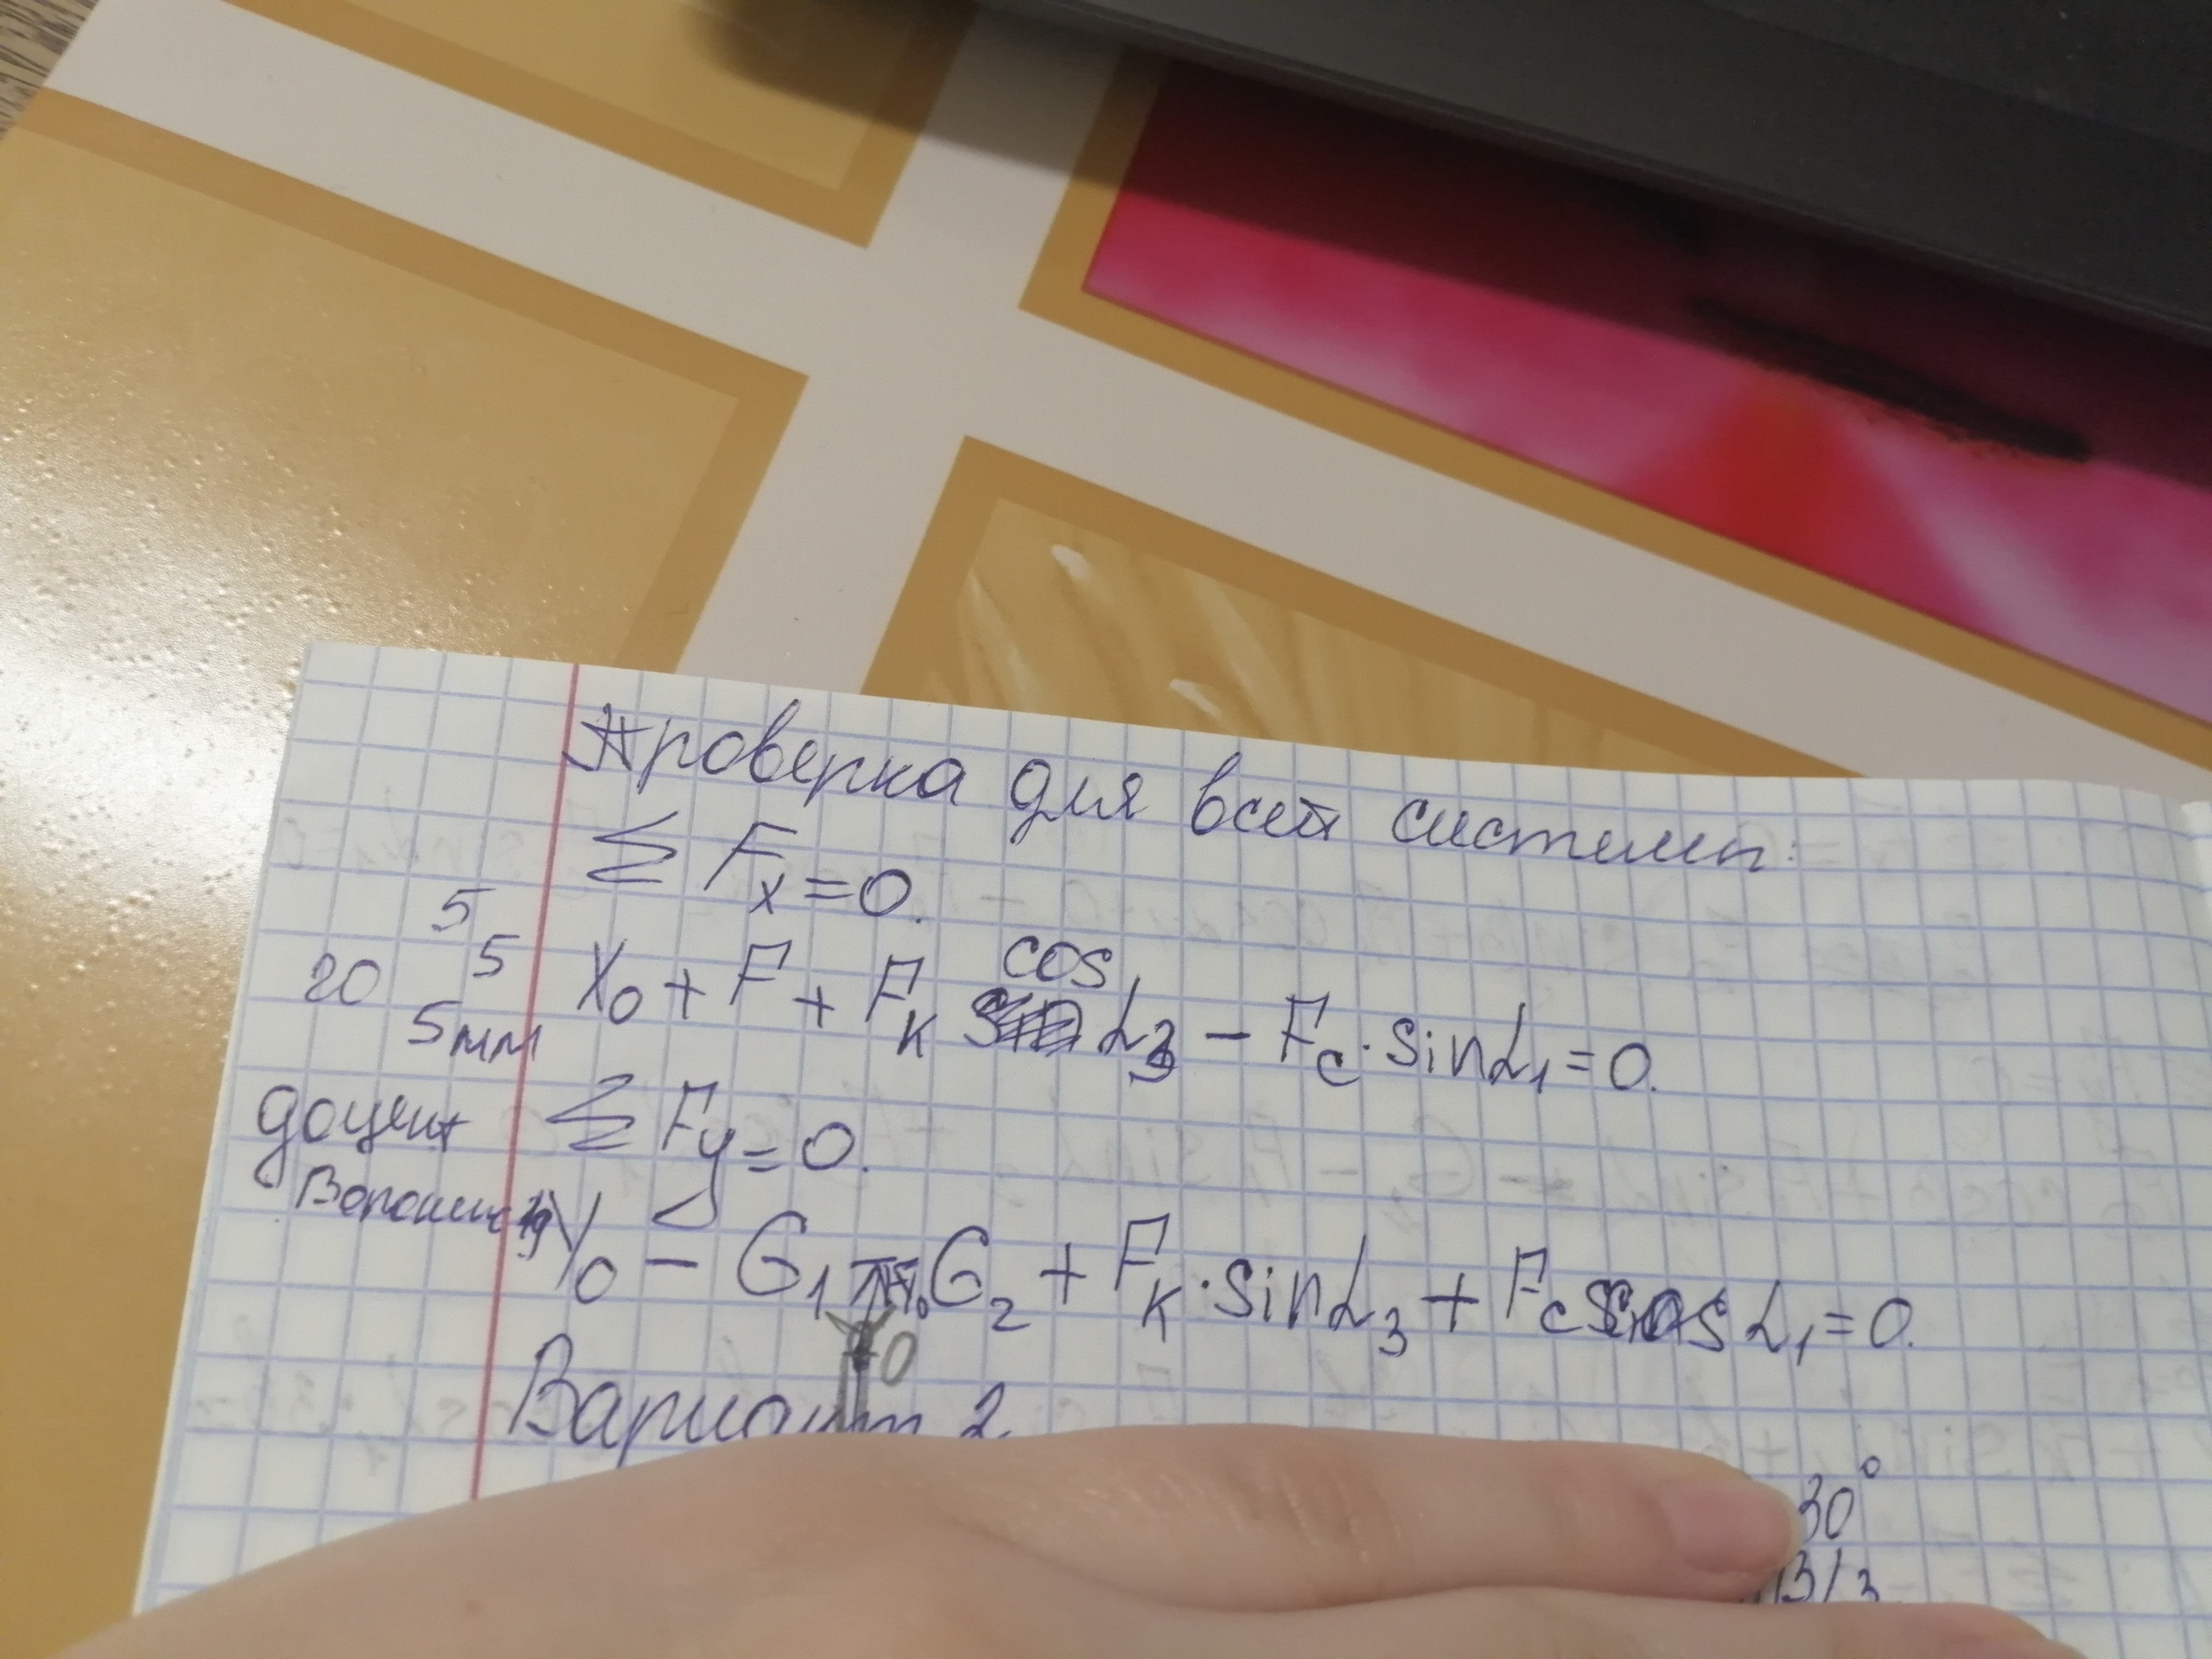 Проверка для всей системы:
Σ Fx = 0.
5
5
20
5мм
X₀ + F + Fк cos α₃ − Fс · sin α₁ = 0.
доцент
Σ Fy = 0.
Y₀ − G₁ − G₂ + Fк · sin α₃ + Fс cos α₁ = 0.
0
Вариант 2
30°
3/3